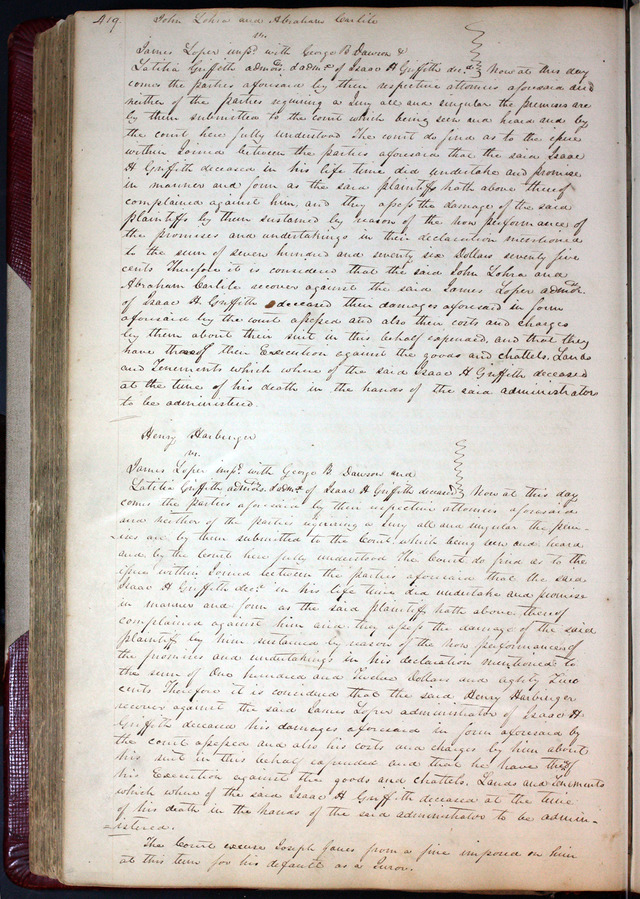 419. John Lohra and Abraham Carlile
vs.
James Loper impd. with George B Dawson &
Latitia Griffith admors. & admx of Isaac H Griffith decd. Now at this day
comes the parties aforesaid by their respective attornies aforesaid and
neither of the parties requiring a Jury all and singular the premises are
by them submitted to the court which being seen and heard and by
the court here fully understood The court do find as to the ipue
within Joined between the parties aforesaid that the said Isaac
H Griffith deceased in his life time did undertake and promise
in manner and form as the said plaintiffs hath above thereof
complained against him, and they apeps the damage of the said
plaintiffs by them sustained by reason of the non performance of
the promises and undertakings in their declaration mentioned
to the sum of seven hundred and seventy six Dollars seventy five
cents Therefore it is considered that the said John Lohra and
Abraham Carlile recover against the said James Loper admor.
of Isaac H. Griffith deceased their damages aforesaid in form
aforesaid by the court apeped and also their costs and charges
by them about their suit in this behalf expended, and that they
have thereof their Execution against the goods and chattels, Lands
and Tenements which where of the said Isaac H Griffith deceased
at the time of his death in the hands of the said administrators
to be administered.
Henry Harbinger
vs.
James Loper impd. with George B. Dawson and
Latitia Griffith admors. & admx of Isaac H Griffith deceased Now at this day
comes the parties aforesaid by their respective attornies aforesaid
and neither of the parties requiring a Jury all and singular the prem-
ises are by them submitted to the Court which being seen and heard
and by the Court here fully understood The Court do find as to the
ipue within Joined between the parties aforesaid that the said
Isaac H Griffith decd. in his life time did undertake and promise
in manner and form as the said plaintiff hath above thereof
complained against him and they apeps the damage of the said
plaintiff by him sustained by reason of the non performance of
the promises and undertakings in his declaration mentioned to
the sum of One hundred and twelve Dollars and eighty Two
cents Therefore it is considered that the said Henry Harbinger
recover against the said James Loper administrator of Isaac H
Griffith deceased his damages aforesaid in form aforesaid by
the court apeped and also his costs and charges by him about
his suit in this behalf expended and that he have thereof
his Execution against the goods and chattels. Lands and Tenements
which where of the said Isaac H Griffith deceased at the time
of his death in the hands of the said administrator to be admin-
istered.
The Court excuse Joseph Janes from a fine imposed on him
at this term for his default as a Juror.